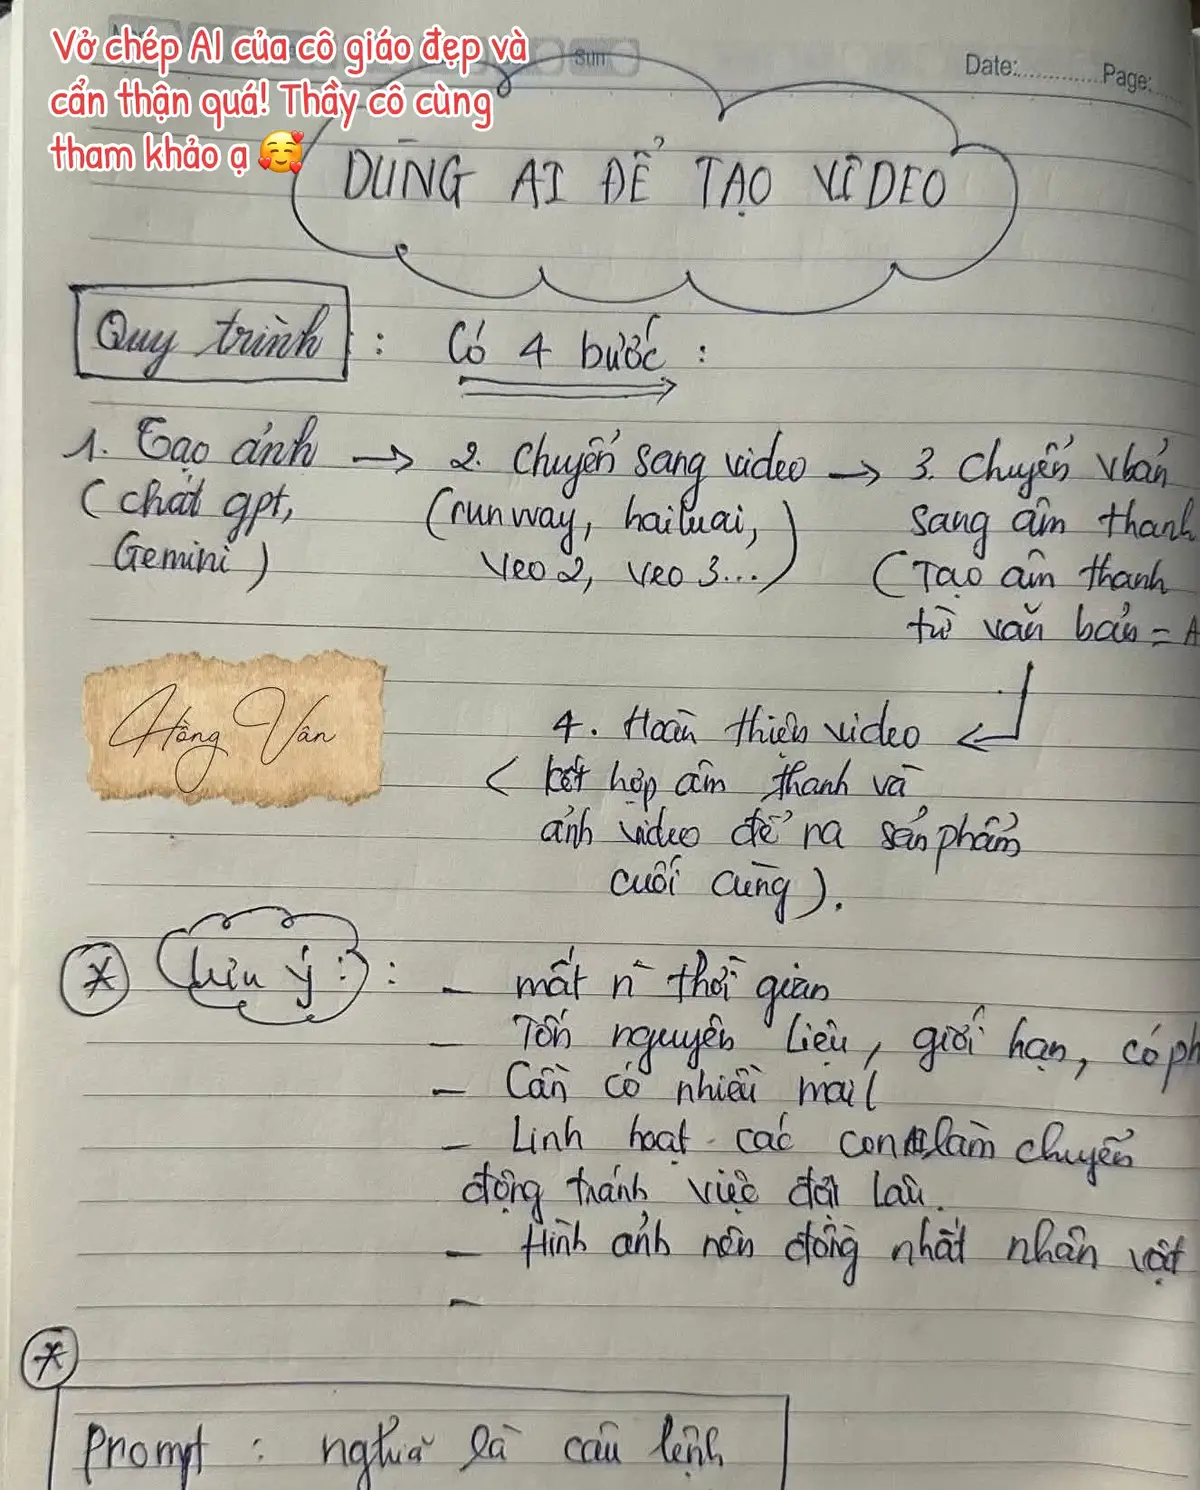 Vở chép AI của cô giáo đẹp và
cẩn thận quá! Thầy cô cùng
tham khảo ạ 🥰
Sun
Date:.............Page:......
DÙNG AI ĐỂ TẠO VIDEO
Quy trình : Có 4 bước :
1. Tạo ảnh → 2. Chuyển sang video → 3. Chuyển vbản
(chát gpt, (runway, hailuai, sang âm thanh
Gemini) Veo 2, Veo 3...) (Tạo âm thanh
từ văn bản = A
Hồng Vân
4. Hoàn thiện video
( kết hợp âm thanh và
ảnh video để ra sản phẩm
cuối cùng).
* Lưu ý : : - mất n` thời gian
- Tốn nguyên liệu, giới hạn, có ph
- Cần có nhiều mail
- Linh hoạt các con AI làm chuyển
động tránh việc đợi lâu.
- Hình ảnh nên đồng nhất nhân vật
-
*
Prompt : nghĩa là câu lệnh